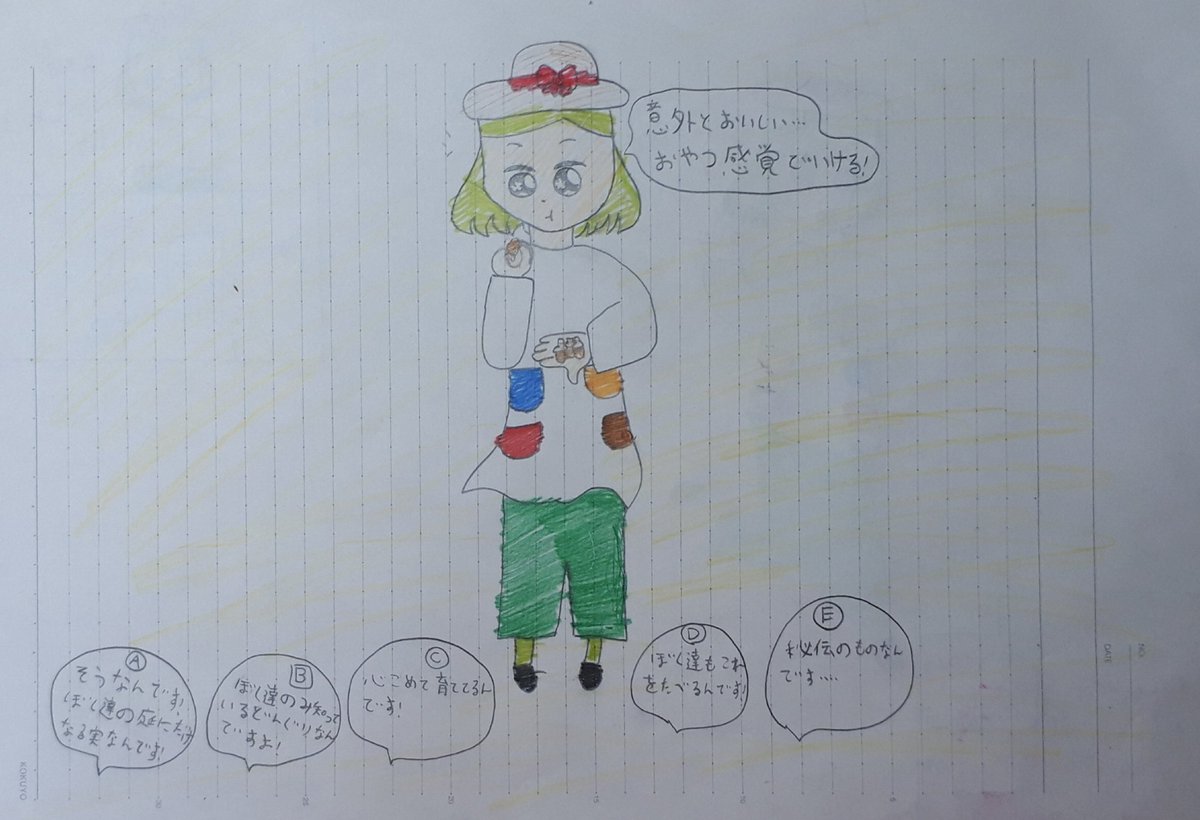 意外とおいしい…
おやつ感覚でいける!
A
そうなんです!
ぼく達の庭にだけ
なる実なんです!
B
ぼく達のみ知って
いるどんぐりなん
ですよ!
C
心こめて育ててるん
です!
D
ぼく達もこれ
をたべるんです!
E
秘伝のものなん
です…
KOKUYO
30
25
20
15
10
5
DATE
NO.